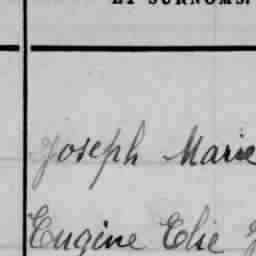 ET SURNOMS.
Joseph Marie
Eugène Elie